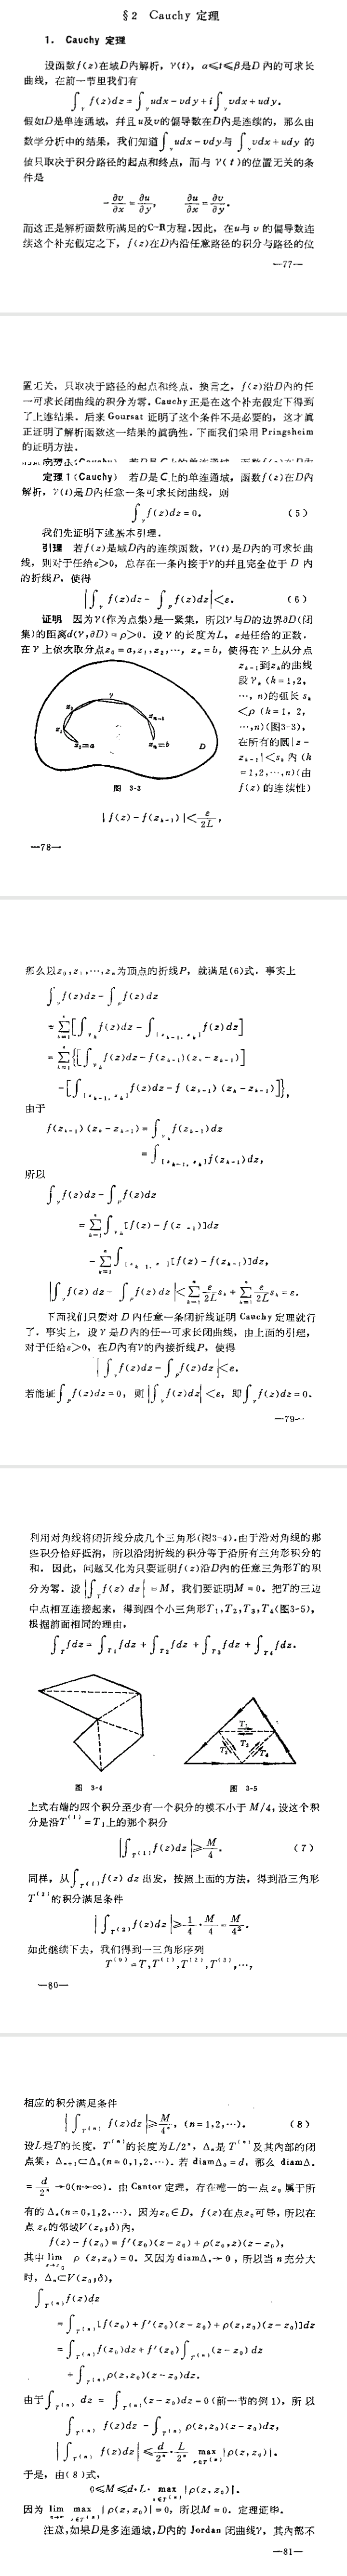 §2 Cauchy 定理
1. Cauchy 定理
设函数f(z)在域D内解析，γ(t)，α≤t≤β是D内的可求长
曲线，在前一节里我们有
∫_γ f(z)dz=∫_γ udx-vdy+i∫_γ vdx+udy.
假如D是单连通域，并且u及v的偏导数在D内是连续的，那么由
数学分析中的结果，我们知道∫_γ udx-vdy与∫_γ vdx+udy 的
值只取决于积分路径的起点和终点，而与γ(t)的位置无关的条
件是
-∂v/∂x=∂u/∂y, ∂u/∂x=∂v/∂y.
而这正是解析函数所满足的C-R方程.因此，在u与v的偏导数连
续这个补充假定之下，f(z)在D内沿任意路径的积分与路径的位
—77—
置无关，只取决于路径的起点和终点．换言之，f(z)沿D内的任
一可求长闭曲线的积分为零．Cauchy正是在这个补充假定下得到
了上连结果．后来Goursat 证明了这个条件不是必要的，这才真
正证明了解析函数这一结果的真确性．下面我们采用Pringsheim
的证明方法．
定理1(Cauchy) 若D是C上的单连通域，函数f(z)在D内
解析，γ(t)是D内任意一条可求长闭曲线，则
∫_γ f(z)dz=0. (5)
我们先证明下述基本引理．
引理 若f(z)是域D内的连续函数，γ(t)是D内的可求长曲
线，则对于任给ε>0，总存在一条内接于γ的并且完全位于D内
的折线P，使得
|∫_γ f(z)dz-∫_P f(z)dz|<ε. (6)
证明 因为γ(作为点集)是一紧集，所以γ与D的边界∂D(闭
集)的距离d(γ,∂D)=ρ>0．设γ的长度为L，ε是任给的正数．
在γ上依次取分点z₀=a,z₁,z₂,…, zₙ=b，使得在γ上从分点
zₖ₋₁到zₖ的曲线
段γₖ (k=1,2,
…, n)的弧长sₖ
<ρ (k=1, 2,
…,n)(图3-3)，
在所有的圆|z-
zₖ₋₁|<sₖ内 (k
=1,2,…,n)(由
f(z)的连续性)
γ
z₂
z₁
z₀=a
zₙ₋₁
zₙ=b
D
图 3-3
|f(z)-f(zₖ₋₁)|<ε/2L,
—78—
那么以z₀,z₁,…,zₙ为顶点的折线P，就满足(6)式．事实上
∫_γ f(z)dz-∫_P f(z)dz
=∑ₖ₌₁ⁿ[∫_γₖ f(z)dz-∫_[zₖ₋₁,zₖ] f(z)dz]
=∑ₖ₌₁ⁿ{[∫_γₖ f(z)dz-f(zₖ₋₁)(zₖ-zₖ₋₁)]
-[∫_[zₖ₋₁,zₖ] f(z)dz-f(zₖ₋₁)(zₖ-zₖ₋₁)]},
由于
f(zₖ₋₁)(zₖ-zₖ₋₁)=∫_γₖ f(zₖ₋₁)dz
=∫_[zₖ₋₁,zₖ] f(zₖ₋₁)dz,
所以
∫_γ f(z)dz-∫_P f(z)dz
=∑ₖ₌₁ⁿ∫_γₖ[f(z)-f(zₖ₋₁)]dz
-∑ₖ₌₁ⁿ∫_[zₖ₋₁,zₖ][f(z)-f(zₖ₋₁)]dz,
|∫_γ f(z)dz-∫_P f(z)dz|<∑ₖ₌₁ⁿ ε/2L sₖ+∑ₖ₌₁ⁿ ε/2L sₖ=ε.
下面我们只要对D内任意一条闭折线证明Cauchy定理就行
了．事实上，设γ是D内的任一可求长闭曲线，由上面的引理，
对于任给ε>0，在D内有γ的内接折线P，使得
|∫_γ f(z)dz-∫_P f(z)dz|<ε.
若能证∫_P f(z)dz=0，则|∫_γ f(z)dz|<ε，即∫_γ f(z)dz=0.
—79—
利用对角线将闭折线分成几个三角形(图3-4).由于沿对角线的那
些积分恰好抵消，所以沿闭折线的积分等于沿所有三角形积分的
和．因此，问题又化为只要证明f(z)沿D内的任意三角形T的积
分为零．设|∫_T f(z)dz|=M，我们要证明M=0．把T的三边
中点相互连接起来，得到四个小三角形T₁,T₂,T₃,T₄(图3-5)，
根据前面相同的理由，
∫_T fdz=∫_T₁ fdz+∫_T₂ fdz+∫_T₃ fdz+∫_T₄ fdz.
T₁
T₂
T₃
T₄
图 3-4
图 3-5
上式右端的四个积分至少有一个积分的模不小于M/4，设这个积
分是沿T⁽¹⁾=T₁上的那个积分
|∫_T⁽¹⁾ f(z)dz|≥M/4. (7)
同样，从∫_T⁽¹⁾ f(z)dz出发，按照上面的方法，得到沿三角形
T⁽²⁾的积分满足条件
|∫_T⁽²⁾ f(z)dz|≥1/4·M/4=M/4².
如此继续下去，我们得到一三角形序列
T⁽⁰⁾=T,T⁽¹⁾,T⁽²⁾,T⁽³⁾,…,
—80—
相应的积分满足条件
|∫_T⁽ⁿ⁾ f(z)dz|≥M/4ⁿ, (n=1,2,…). (8)
设L是T的长度，T⁽ⁿ⁾的长度为L/2ⁿ，Δₙ是T⁽ⁿ⁾及其内部的闭
点集，Δₙ₊₁⊂Δₙ(n=0,1,2,…)．若diamΔ₀=d，那么diamΔₙ
=d/2ⁿ→0(n→∞)．由Cantor定理，存在唯一的一点z₀属于所
有的Δₙ(n=0,1,2,…)．因为z₀∈D，f(z)在点z₀可导，所以在
点z₀的邻域V(z₀;δ)内，
f(z)-f(z₀)=f′(z₀)(z-z₀)+ρ(z,z₀)(z-z₀),
其中lim_z→z₀ ρ(z,z₀)=0．又因为diamΔₙ→0，所以当n充分大
时，Δₙ⊂V(z₀;δ)，
∫_T⁽ⁿ⁾ f(z)dz
=∫_T⁽ⁿ⁾[f(z₀)+f′(z₀)(z-z₀)+ρ(z,z₀)(z-z₀)]dz
=∫_T⁽ⁿ⁾ f(z₀)dz+f′(z₀)∫_T⁽ⁿ⁾(z-z₀)dz
+∫_T⁽ⁿ⁾ ρ(z,z₀)(z-z₀)dz.
由于∫_T⁽ⁿ⁾ dz=∫_T⁽ⁿ⁾(z-z₀)dz=0(前一节的例1)，所以
∫_T⁽ⁿ⁾ f(z)dz=∫_T⁽ⁿ⁾ ρ(z,z₀)(z-z₀)dz,
|∫_T⁽ⁿ⁾ f(z)dz|≤d/2ⁿ·L/2ⁿ max_z∈T⁽ⁿ⁾|ρ(z,z₀)|.
于是，由(8)式，
0≤M≤d·L· max_z∈T⁽ⁿ⁾|ρ(z,z₀)|.
因为 lim_n→∞ max_z∈T⁽ⁿ⁾|ρ(z,z₀)|=0，所以M=0．定理证毕．
注意，如果D是多连通域，D内的Jordan闭曲线γ，其内部不
—81—